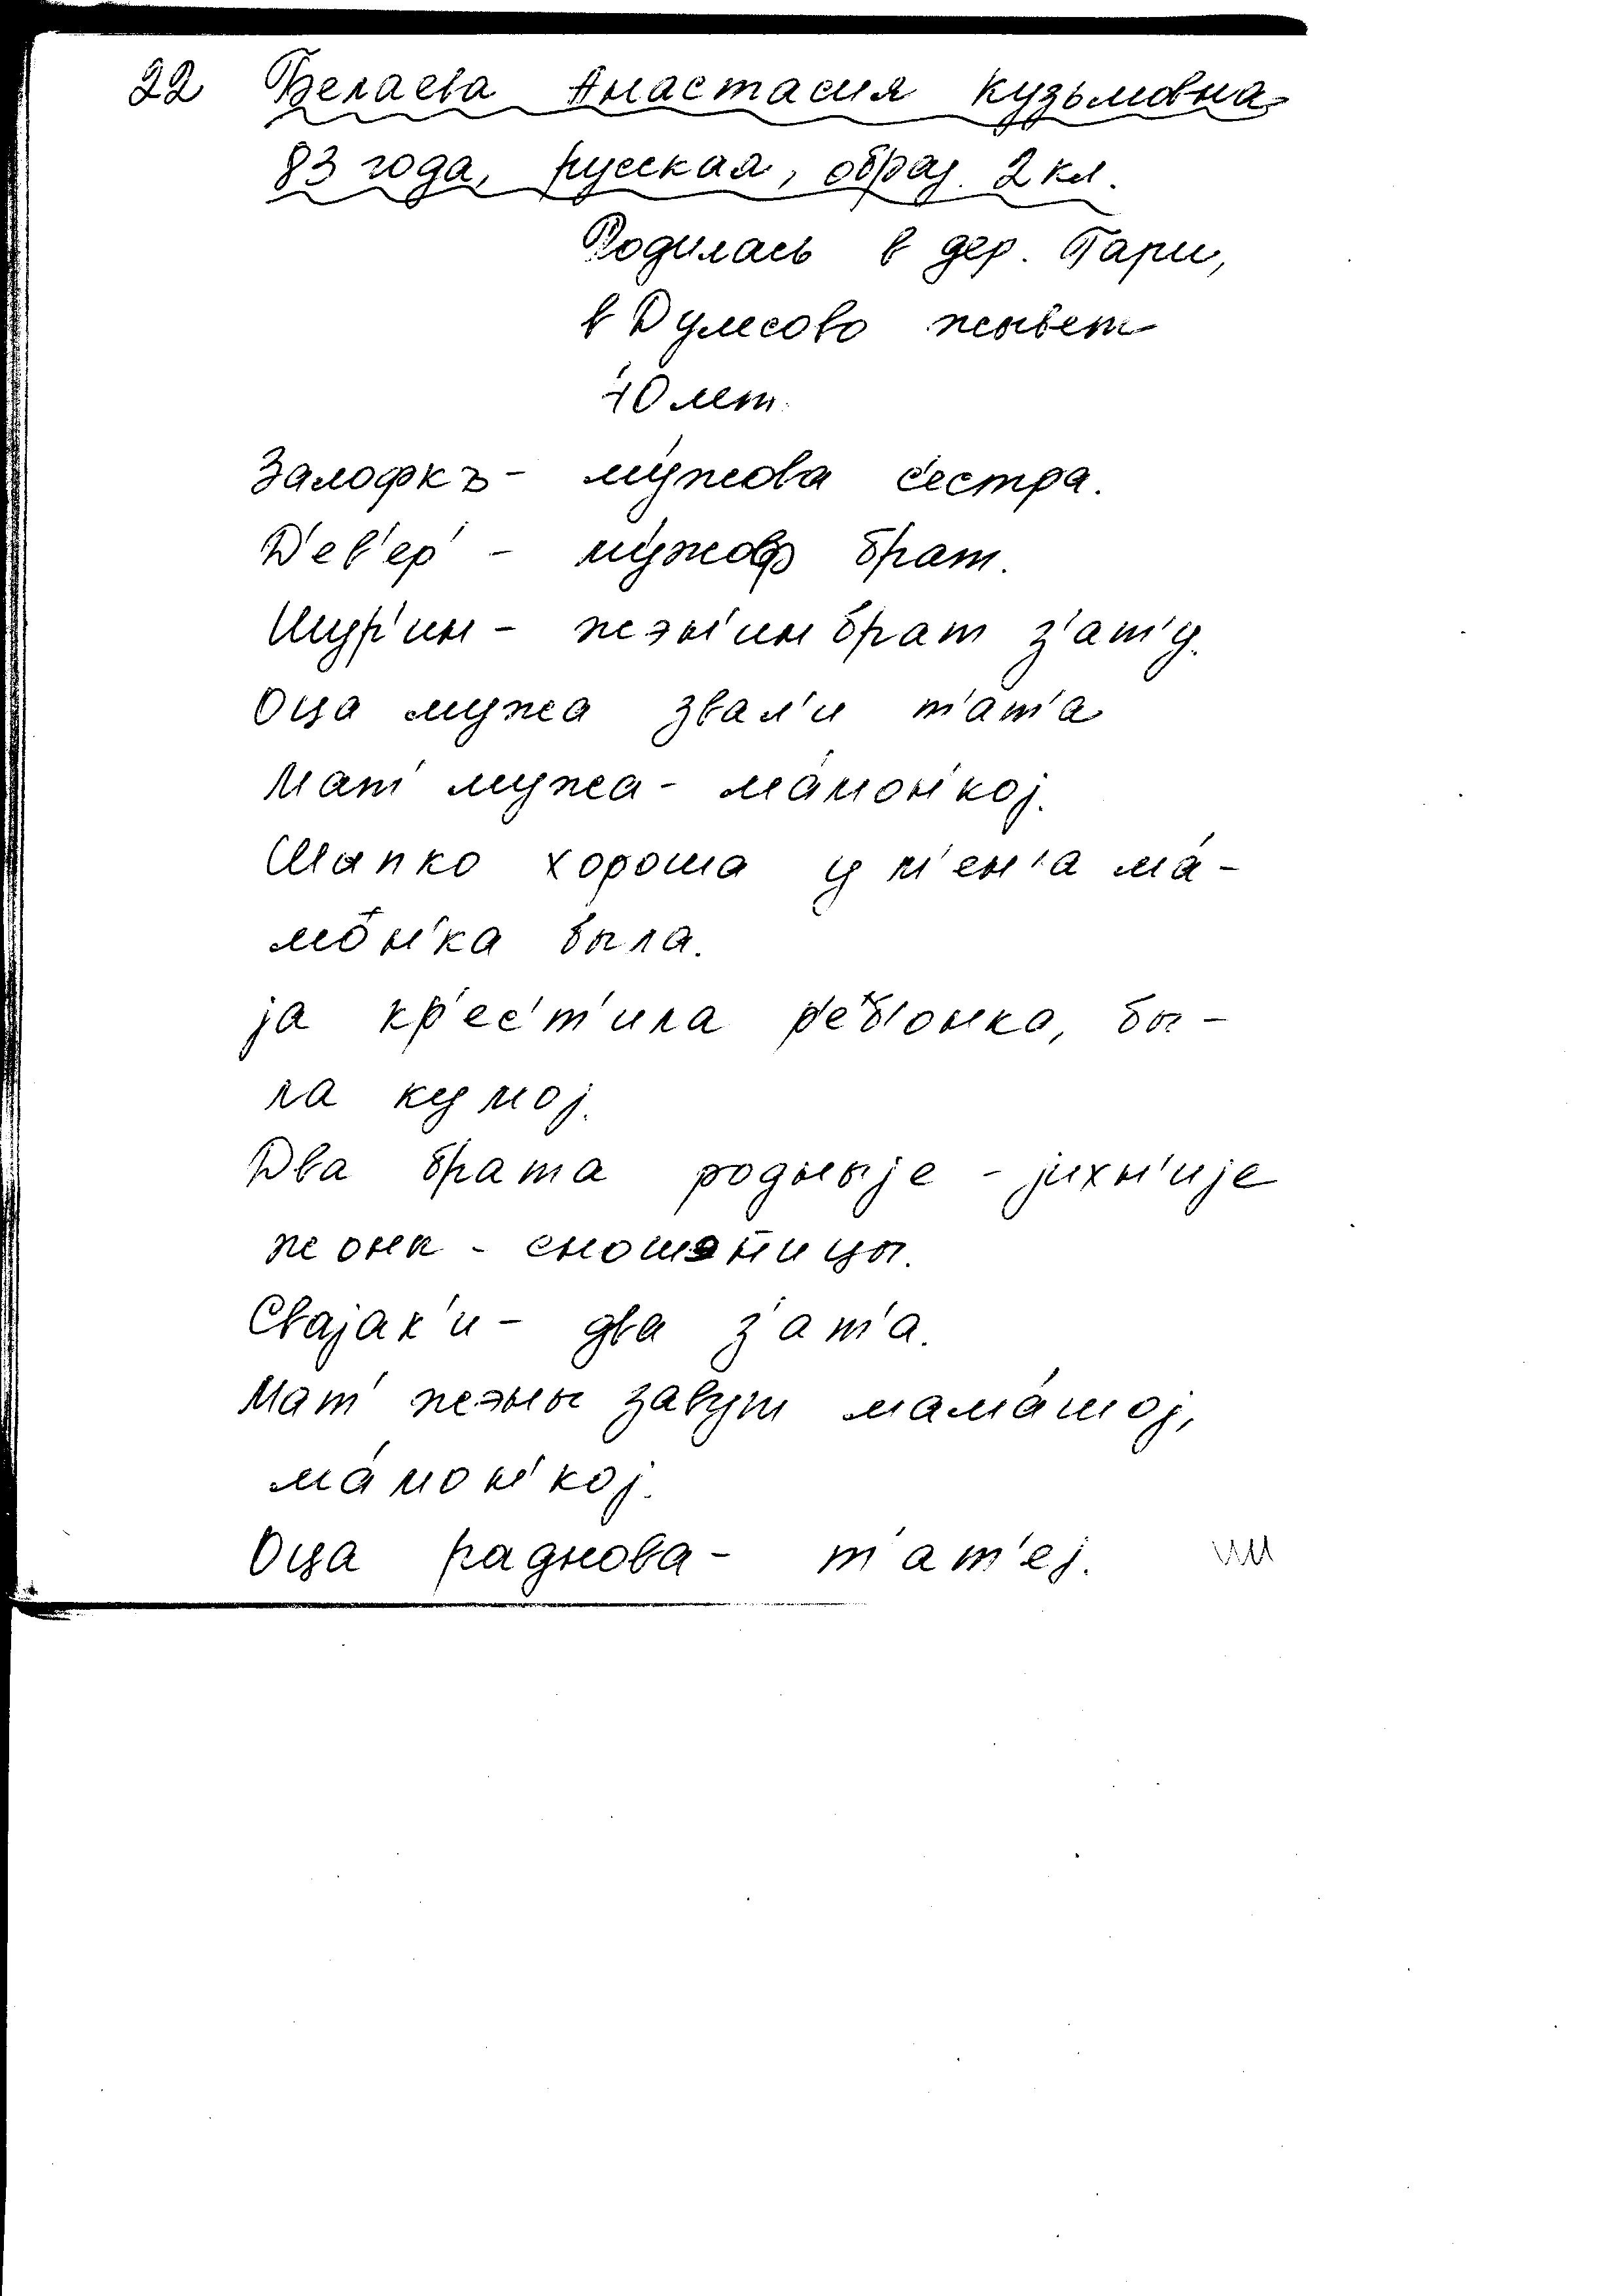 22 Белаева Анастасия Кузьмовна
83 года, русская, образ. 2 кл.
Родилась в дер. Гари,
в Думсово жывет
40 лет.
Залофкъ - му́жова с'естра.
Д'ев'ер' - му́жоф брат.
Шур'ин - жэн'ин брат з'ат'у.
Оца мужа звал'и т'ат'а
Мат' мужа - ма́мон'кој.
Шыпко хороша у м'ен'а ма́-
мон'ка была.
jа кр'ес'т'ила р'еб'онка, бы-
ла кумој.
Два брата родныје - јихн'ије
жонк - сношэницы.
Свајак'и - два з'ат'а.
Мат' жэны завут мама́шој,
ма́мон'кој.
Оца раднова - т'ат'еј.